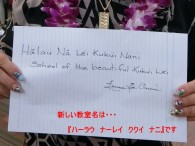 Hālau Nā Lei Kukui Nani
School of the beautiful Kukui Lei
新しい教室名は・・・
『ハーラウ ナーレイ ククイ ナニ』です